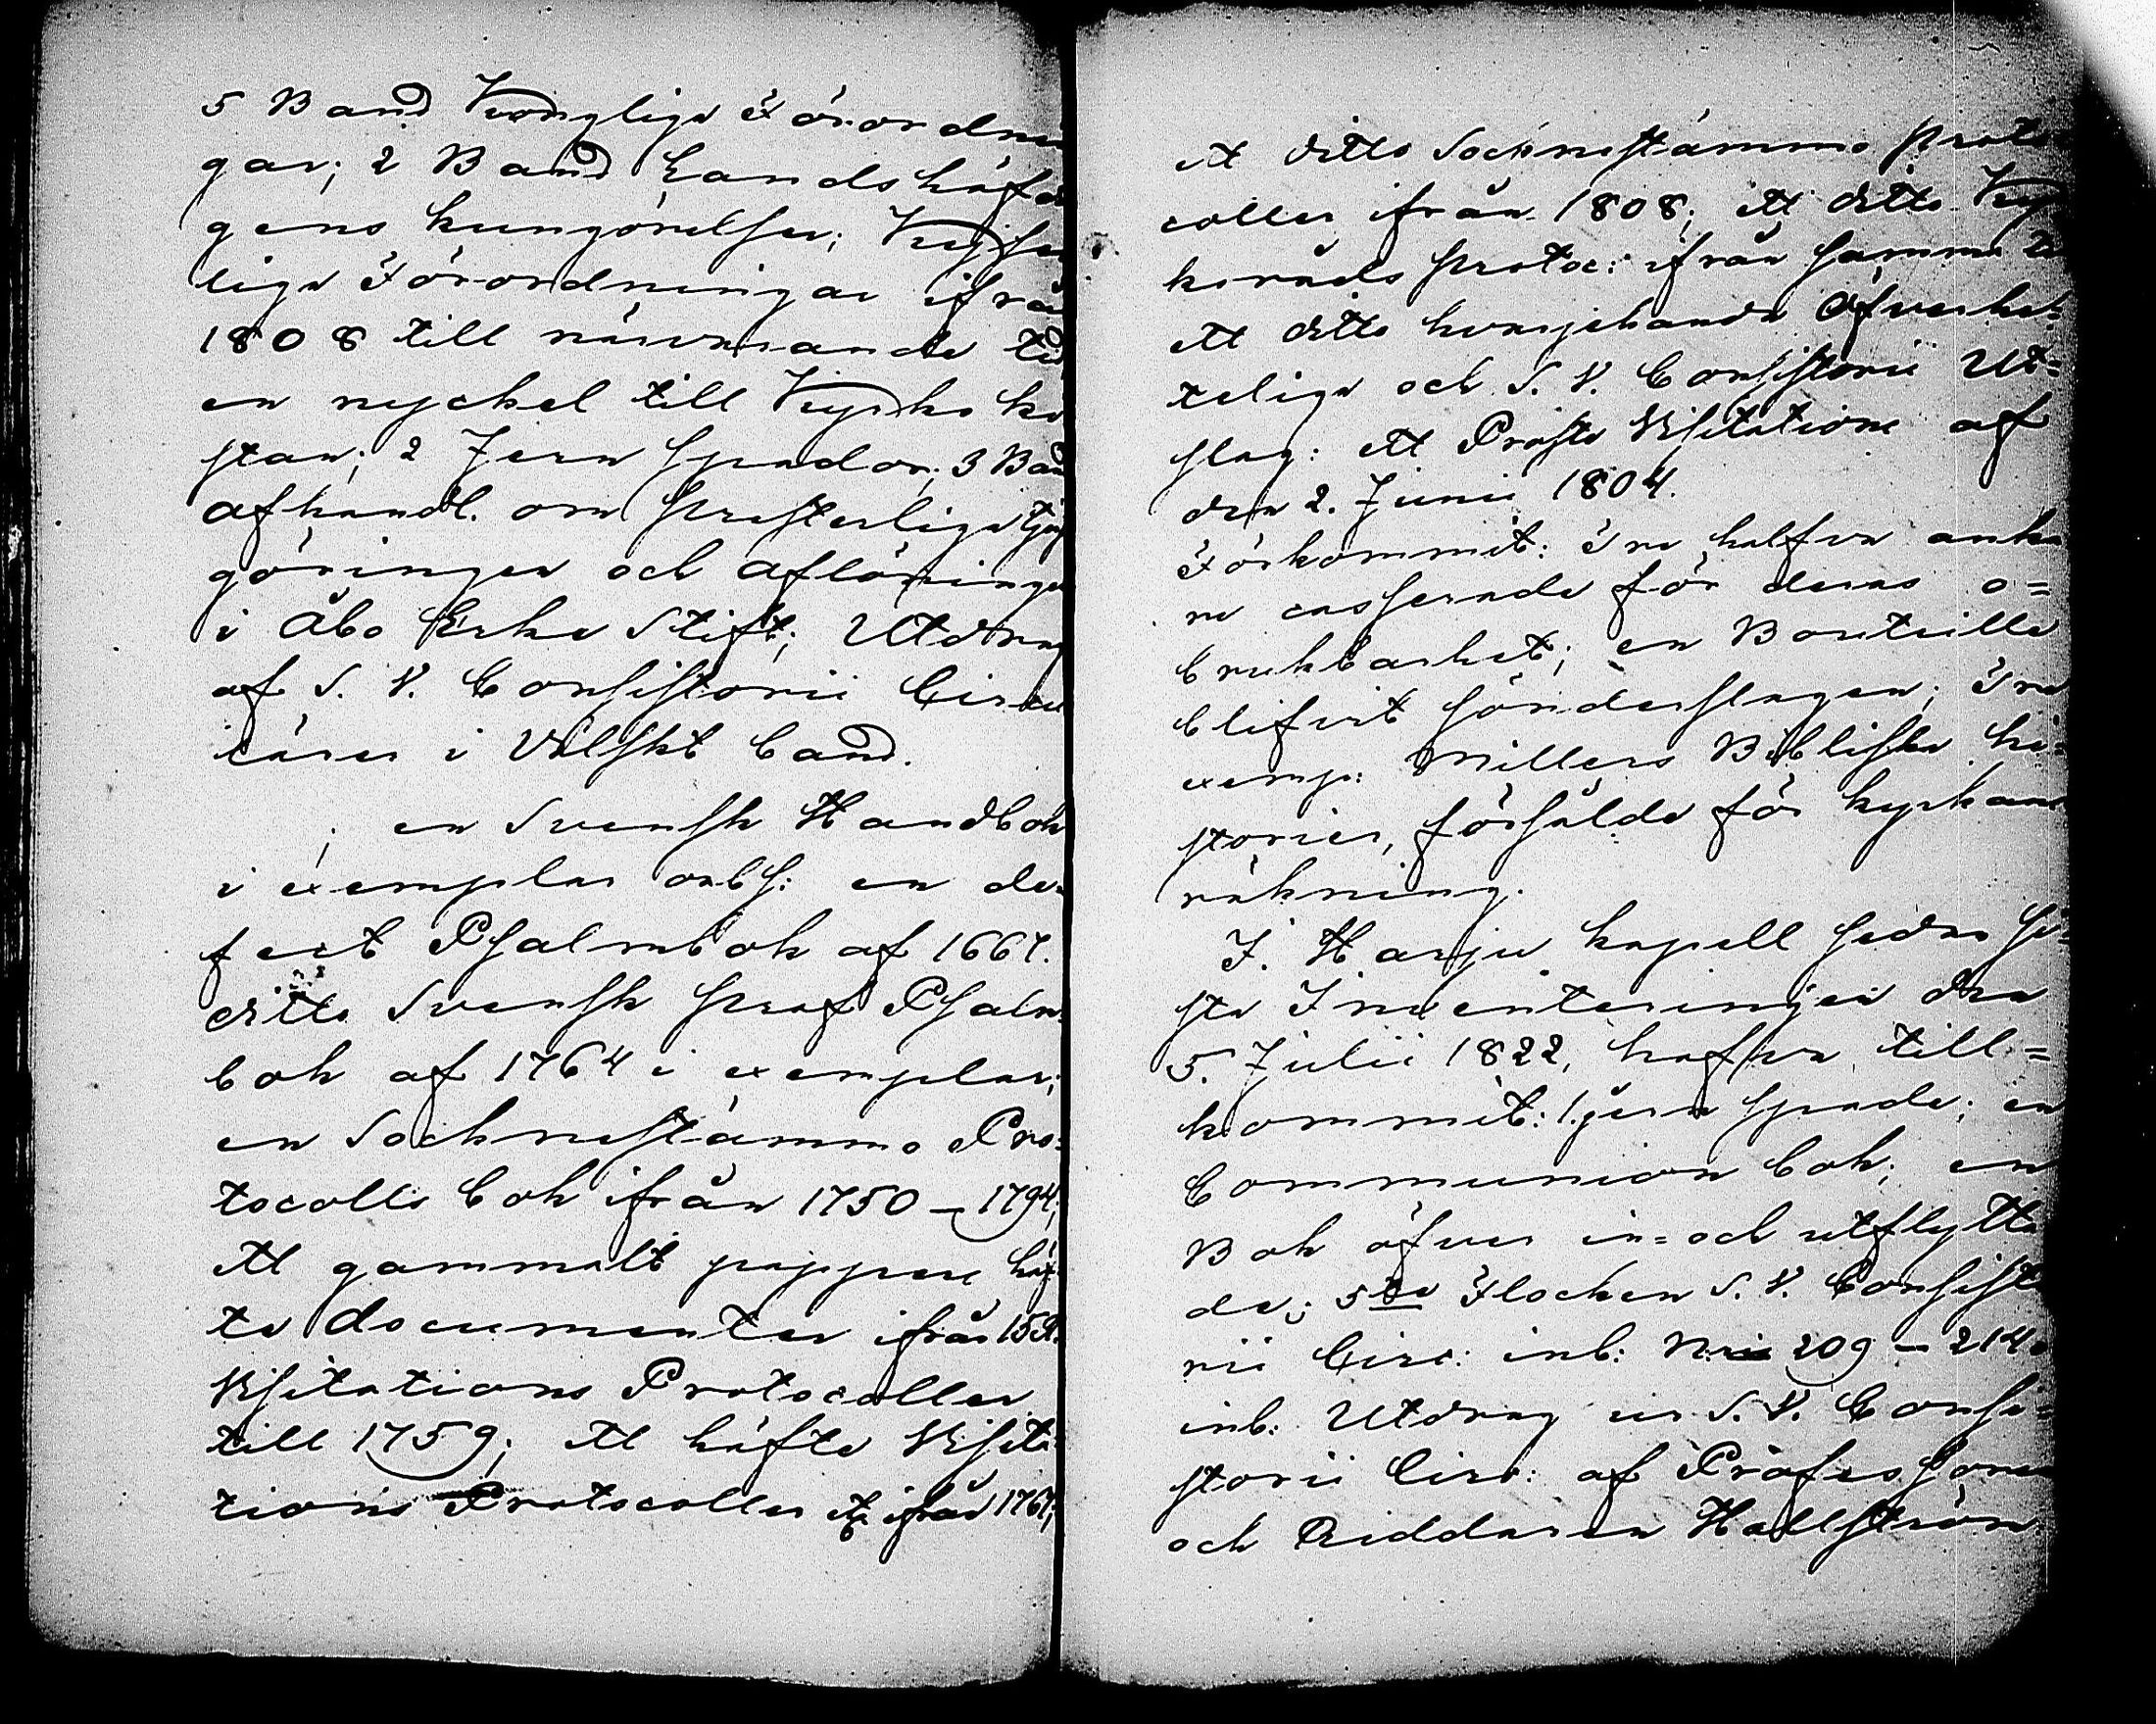 5 Band Kongliga Förordnin
gar; 2 Band Landshöfdi
gens kungörelser; Kejser
liga Förordningar ifrån
1808 till närvarande tid,
en nyckel till Kyrko ki
stan; 2 Jern spador; 3 Band
afhandl. om Presterliga tjenst
göringen och aflöningen
i Åbo Erke Stift; Utdrag
af S. V. Consistorii Circu
lärer i Välskt band.
; en Svensk Handbok
i exemplar obs: en de=
fect Psalmbok af 1667.
ditto Svensk prof Psalm
bok af 1764 i exemplar;
en Socknestämmo Pro=
tocolls bok ifrån 1750 – 1794;
ett gammalt papper häf
te documenter ifrån
Visitations Protocoller
till 1759; ett häfte Visita
tions Protocoller ifrån 1767;
ett ditto Socknestämmo proto
coller ifrån 1808; ett ditto Kyr
koråds protoc: ifrån samma
ett ditto hvarjehanda Öfverhe=
teliga och S. V. Consistorii Ut=
slag: ett Prosts Visitations af
den 2. Junii 1804.
Förkommit: Tre halfva anka
re casserade för deras o=
brukbarhet; en Bouteille
blifvit sönderslagen; Tre
exemp: Millers Bibliska hi=
storier, försålde för kyrkans
räkning.
I. Harju kapell sedan si=
sta Inventeringen den
5. Julii 1822, hafva till=
kommit: 1. jern spade; en
Communion bok; en
Bok öfver in= och utflytta
de; 5te Flocken S. V. Consisto
rii Circ: inb: N:ris 209 – 214.
inb: Utdrag ur S. V. Consi=
storii Circ: af Professoren
och Riddaren Hällström.